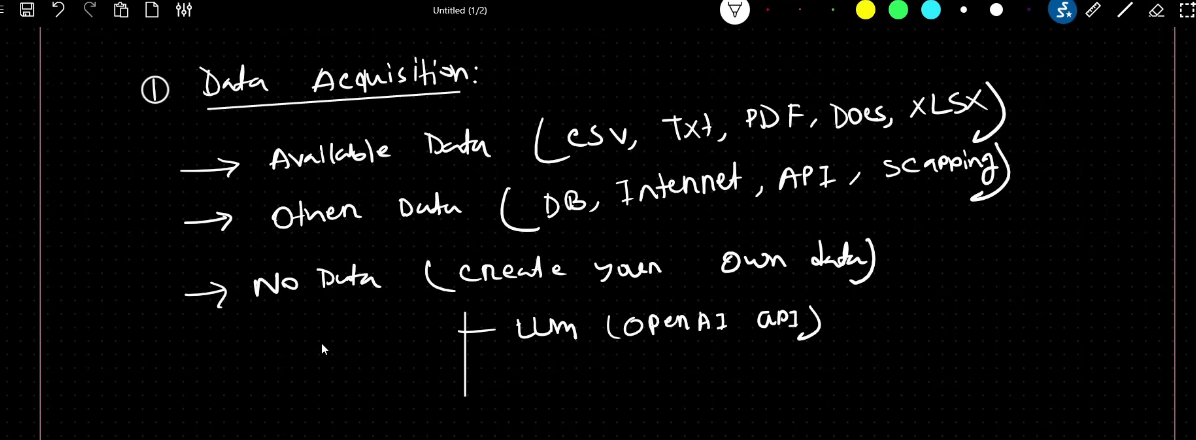 Untitled (1/2)
① Data Acquisition:
→ Available Data (CSV, Txt, PDF, Docs, XLSX)
→ Other Data (DB, Internet, API, scapping)
→ No Data (create your own data)
LLM (OPenAI API)